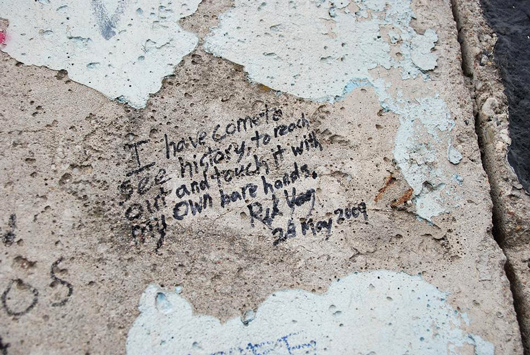 I have come to
see history, to reach
out and touch it with
my own bare hands.
24 May 2009